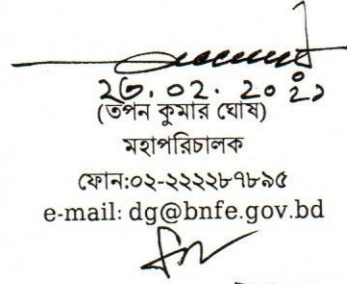 ২৫.০২.২০২১
(তপন কুমার ঘোষ)
মহাপরিচালক
ফোন:০২-২২২২৮৭৮৯৫
e-mail: dg@bnfe.gov.bd